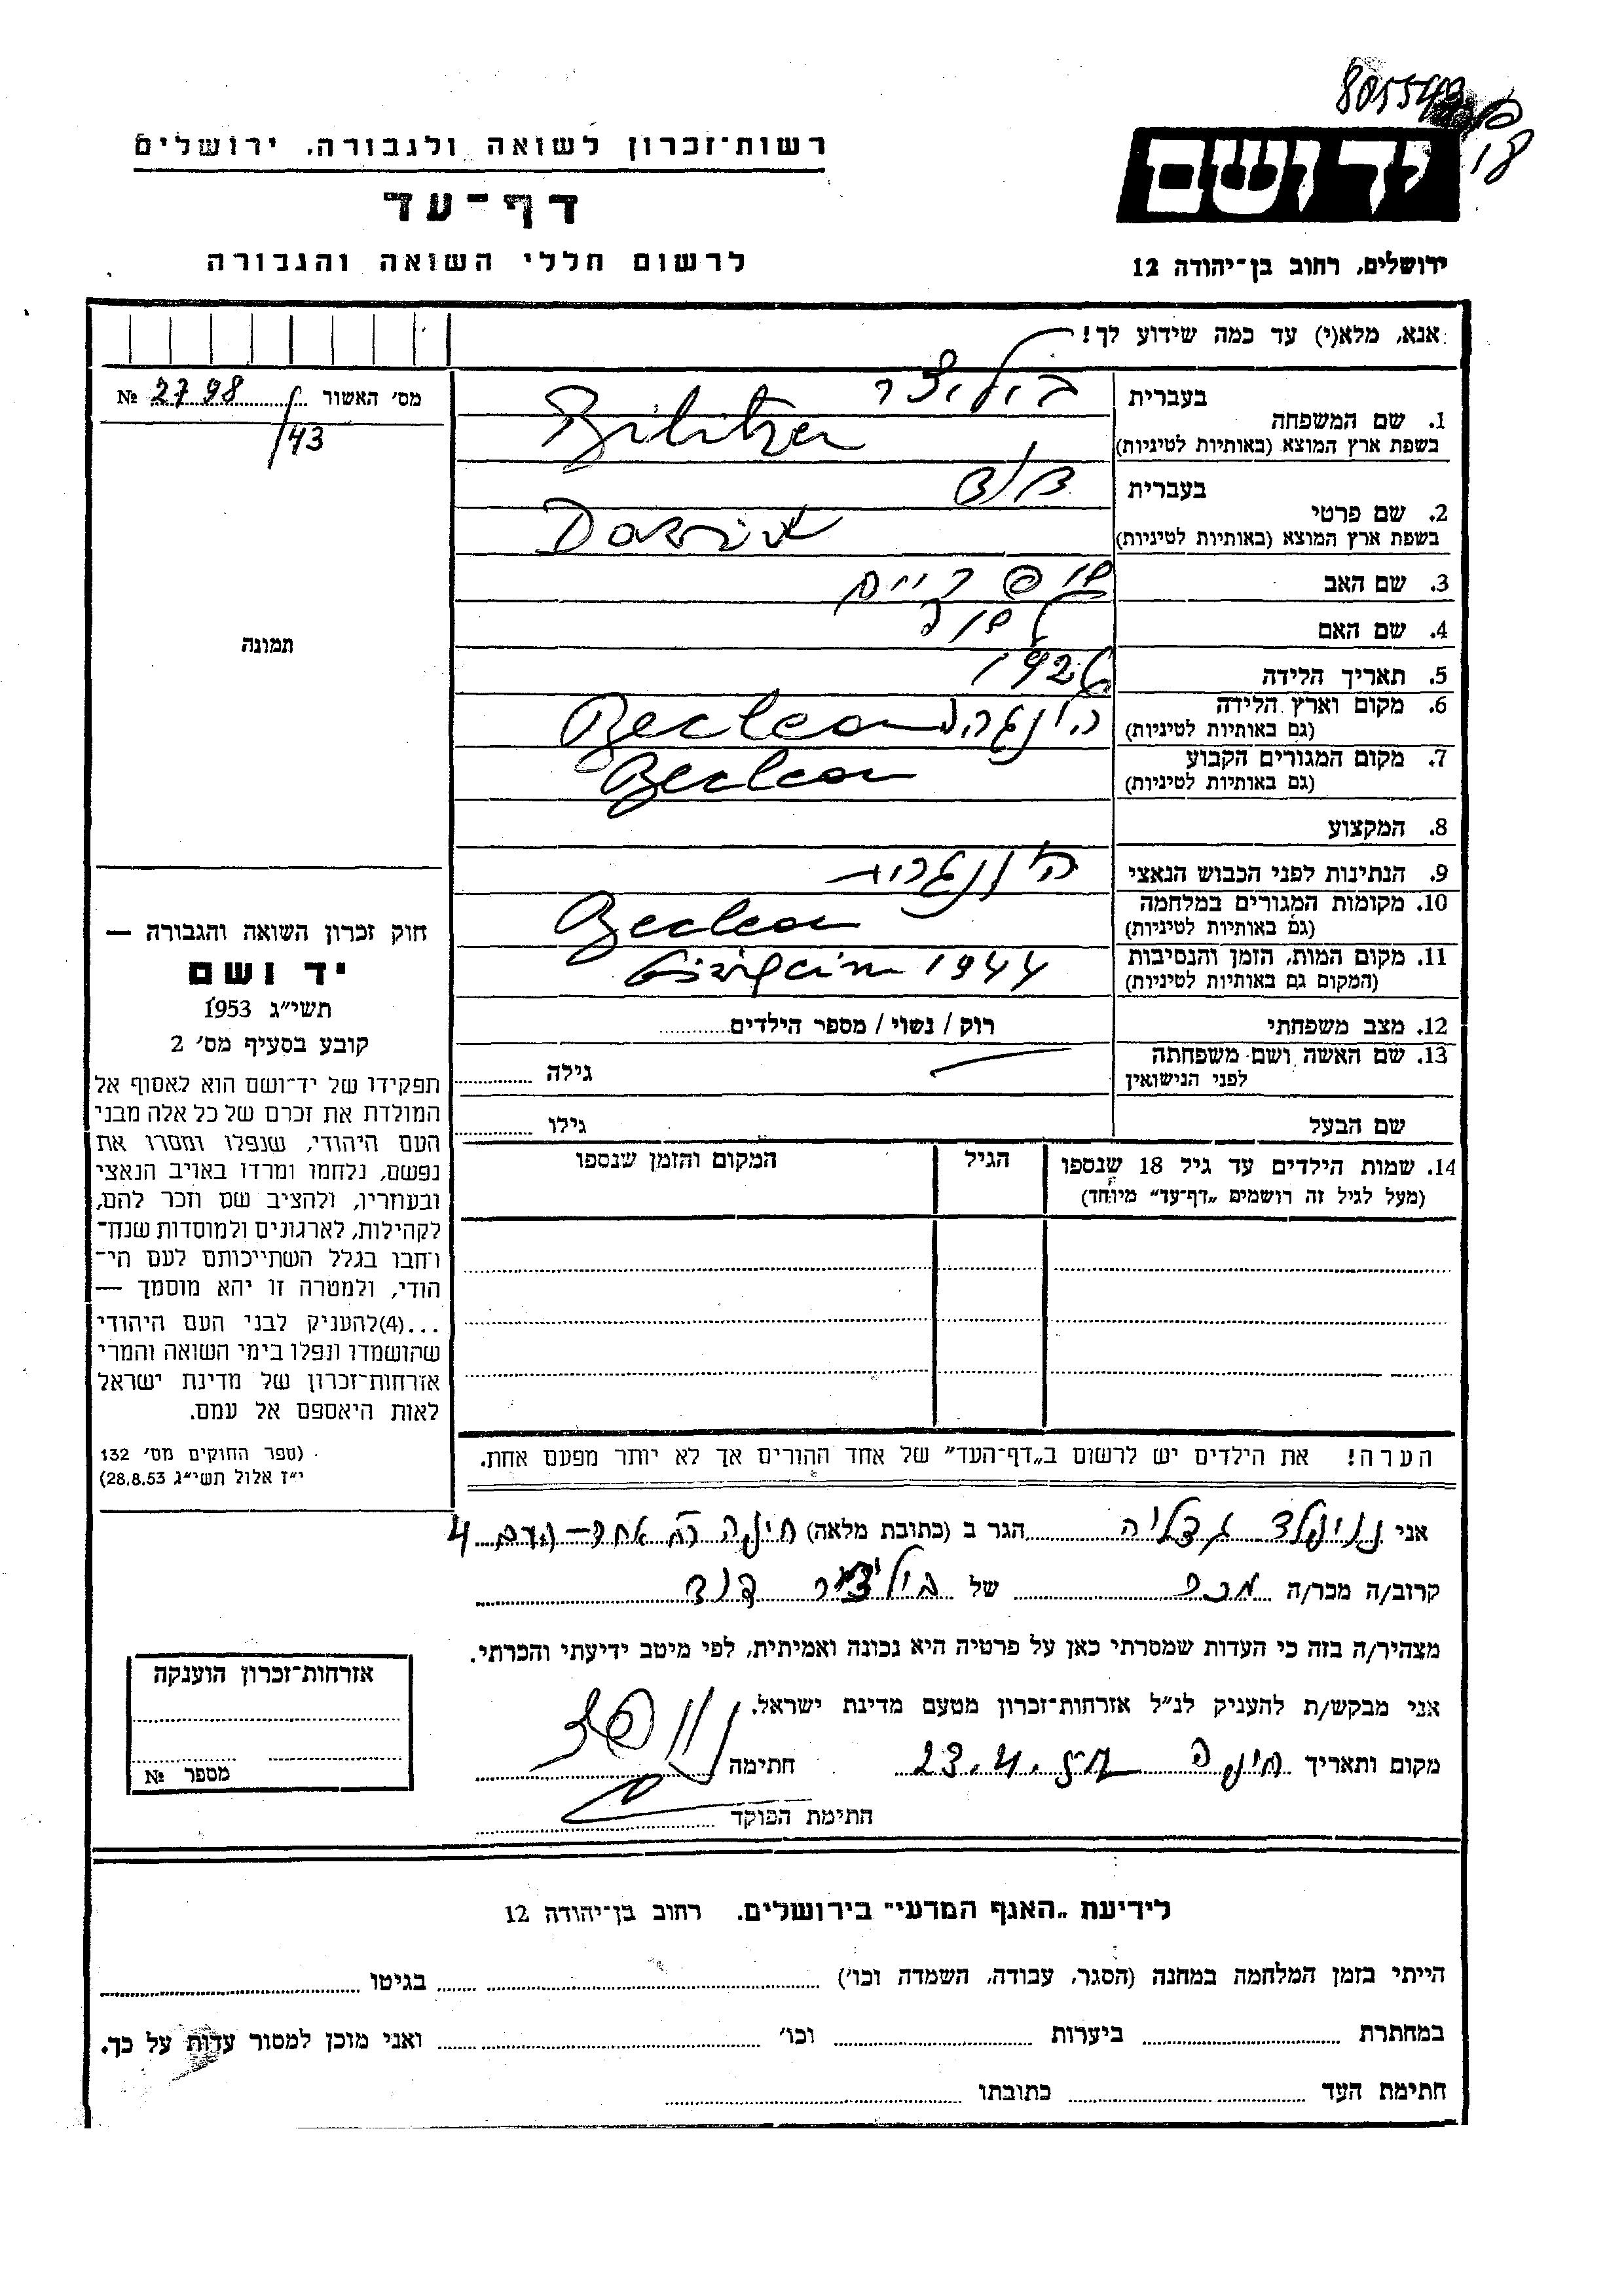 805549
18
רשות־זכרון לשואה ולגבורה. ירושלים
דף־עד
לרשום חללי השואה והגבורה
יד ושם
ירושלים, רחוב בן־יהודה 12
אנא, מלא(י) עד כמה שידוע לך!
מס׳ האשור 2798 №
/43
תמונה
1. שם המשפחה
בעברית ביליצר
בשפת ארץ המוצא (באותיות לטיניות) Bilitzer
2. שם פרטי
בעברית דוד
בשפת ארץ המוצא (באותיות לטיניות)
3. שם האב
4. שם האם
5. תאריך הלידה 1926
6. מקום וארץ הלידה
(גם באותיות לטיניות) הונגריה Beclean
7. מקום המגורים הקבוע
(גם באותיות לטיניות) Beclean
8. המקצוע
9. הנתינות לפני הכבוש הנאצי הונגרית
10. מקומות המגורים במלחמה
(גם באותיות לטיניות) Beclean
11. מקום המות, הזמן והנסיבות
(המקום גם באותיות לטיניות) 1944
12. מצב משפחתי רוק / נשוי / מספר הילדים
13. שם האשה ושם משפחתה
לפני הנישואין גילה
שם הבעל גילו
14. שמות הילדים עד גיל 18 שנספו
(מעל לגיל זה רושמים „דף־עד” מיוחד)
הגיל
המקום והזמן שנספו
חוק זכרון השואה והגבורה —
יד ושם
תשי״ג 1953
קובע בסעיף מס׳ 2
תפקידו של יד־ושם הוא לאסוף אל
המולדת את זכרם של כל אלה מבני
העם היהודי, שנפלו ומסרו את
נפשם, נלחמו ומרדו באויב הנאצי
ובעוזריו, ולהציב שם וזכר להם,
לקהילות, לארגונים ולמוסדות שנח־
רבו בגלל השתייכותם לעם הי־
הודי, ולמטרה זו יהא מוסמך —
...(4)להעניק לבני העם היהודי
שהושמדו ונפלו בימי השואה והמרי
אזרחות־זכרון של מדינת ישראל
לאות היאספם אל עמם.
(ספר החוקים מס׳ 132
י״ז אלול תשי״ג 28.8.53)
הערה! את הילדים יש לרשום ב„דף־העד” של אחד ההורים אך לא יותר מפעם אחת.
אני גדליה הגר ב (כתובת מלאה) חיפה אחד־העם 4
קרוב/ה מכר/ה מכר של ביליצר דוד
מצהיר/ה בזה כי העדות שמסרתי כאן על פרטיה היא נכונה ואמיתית, לפי מיטב ידיעתי והכרתי.
אני מבקש/ת להעניק לנ״ל אזרחות־זכרון מטעם מדינת ישראל.
מקום ותאריך חיפה 23.4. חתימה
חתימת הפוקד
אזרחות־זכרון הוענקה
מספר №
לידיעת „האגף המדעי” בירושלים. רחוב בן־יהודה 12
הייתי בזמן המלחמה במחנה (הסגר, עבודה, השמדה וכו׳) בגיטו
במחתרת ביערות וכו׳ ואני מוכן למסור עדות על כך.
חתימת העד כתובתו